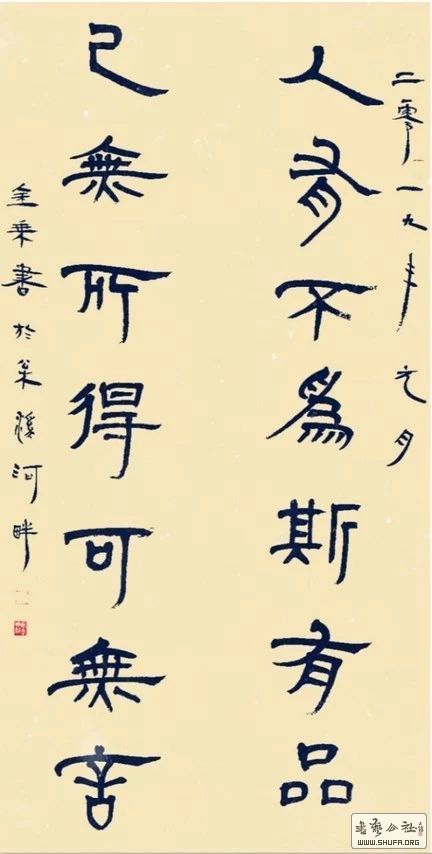 二零一九年元月
人有不為斯有品
己無所得可無言
金乘書於米溪河畔
书艺公社
WWW.SHUFA.ORG